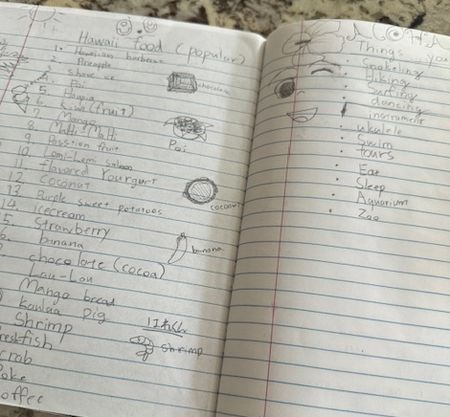 Hawaii food (popular)
1. Hawaiian barbecue
2. Pineapple
3. shave ice
4. Poi
5. Papaya
6. Kiwi (fruit)
7. Mango
8. Malti Malti
9. Passtion fruit
10. Lomi-Lomi salmon
11. flavored Yourgurt
12. coconut
13. Purple sweet potatoes
14. Icecream
15. Strawberry
banana
chocolate (cocoa)
Lau-Lau
Mango bread
kaulua pig
Shrimp
crab
Poke
coffee
chocolate
Poi
coconut
banana
shrimp
ALOHA
Things you
• Snokeling
• Hiking
• Surfing
• dancing
• instrument
• Ukulele
• Swim
• Tours
• Eat
• Sleep
• Aquarium
• Zoo